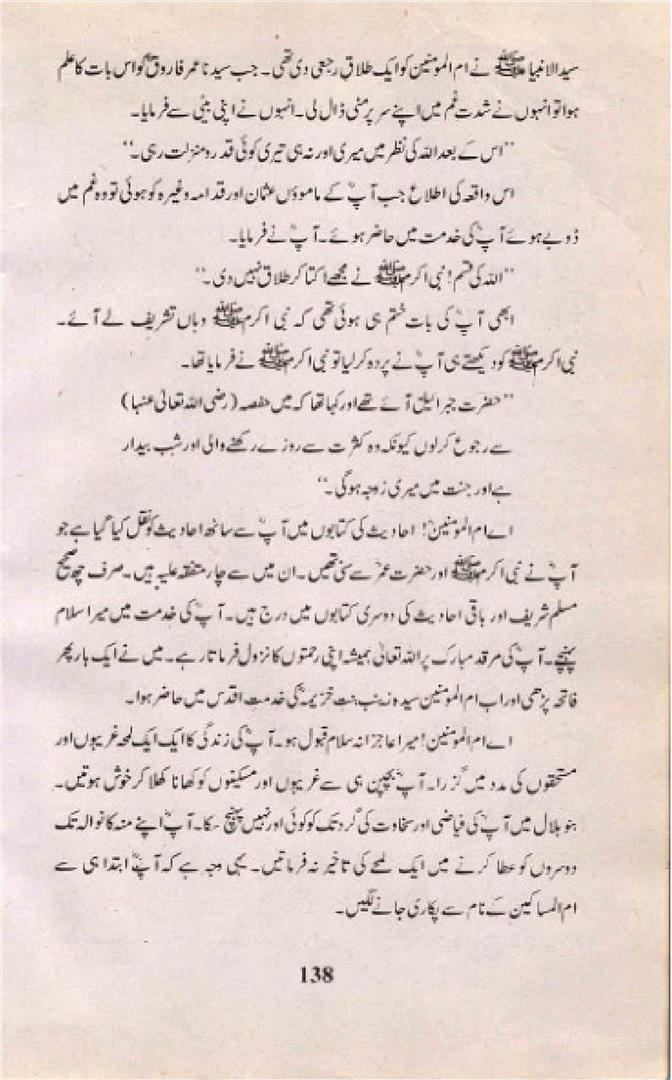 سید الانبیا ﷺ نے ام المومنین کو ایک طلاق رجعی دی تھی۔ جب سیدنا عمر فاروقؓ کو اس بات کا علم
ہوا تو انہوں نے شدت غم میں اپنے سر پر مٹی ڈال لی۔ انہوں نے اپنی بیٹی سے فرمایا۔
"اس کے بعد اللہ کی نظر میں میری اور نہ ہی تیری کوئی قدر و منزلت رہی۔"
اس واقعہ کی اطلاع جب آپؓ کے ماموؤں عثمان اور قدامہ وغیرہ کو ہوئی تو وہ غم میں
ڈوبے ہوئے آپؓ کی خدمت میں حاضر ہوئے۔ آپؓ نے فرمایا۔
"اللہ کی قسم! نبی اکرم ﷺ نے مجھے اکتا کر طلاق نہیں دی۔"
ابھی آپؓ کی بات ختم ہی ہوئی تھی کہ نبی اکرم ﷺ وہاں تشریف لے آئے۔
نبی اکرم ﷺ کو دیکھتے ہی آپؓ نے پردہ کر لیا تو نبی اکرم ﷺ نے فرمایا تھا۔
"حضرت جبرائیلؑ آئے تھے اور کہا تھا کہ میں حفصہ (رضی اللہ تعالیٰ عنہا)
سے رجوع کر لوں کیونکہ وہ کثرت سے روزے رکھنے والی اور شب بیدار
ہے اور جنت میں میری زوجہ ہو گی۔"
اے ام المومنینؓ! احادیث کی کتابوں میں آپؓ سے ساٹھ احادیث کو نقل کیا گیا ہے جو
آپؓ نے نبی اکرم ﷺ اور حضرت عمرؓ سے سنی تھیں۔ ان میں سے چار متفقہ علیہ ہیں۔ صرف چھ صحیح
مسلم شریف اور باقی احادیث کی دوسری کتابوں میں درج ہیں۔ آپؓ کی خدمت میں میرا سلام
پہنچے۔ آپؓ کی مرقد مبارک پر اللہ تعالیٰ ہمیشہ اپنی رحمتوں کا نزول فرماتا رہے۔ میں نے ایک بار پھر
فاتحہ پڑھی اور اب ام المومنین سیدہ زینب بنت خزیمہؓ کی خدمت اقدس میں حاضر ہوا۔
اے ام المومنین! میرا عاجزانہ سلام قبول ہو۔ آپؓ کی زندگی کا ایک ایک لمحہ غریبوں اور
مستحقوں کی مدد میں گزرا۔ آپؓ بچپن ہی سے غریبوں اور مسکینوں کو کھانا کھلا کر خوش ہوتیں۔
بنو ہلال میں آپؓ کی فیاضی اور سخاوت کی گرد تک کو کوئی اور نہیں پہنچ سکا۔ آپؓ اپنے منہ کا نوالہ تک
دوسروں کو عطا کرنے میں ایک لمحے کی تاخیر نہ فرماتیں۔ یہی وجہ ہے کہ آپؓ ابتدا ہی سے
ام المساکین کے نام سے پکاری جانے لگیں۔
138